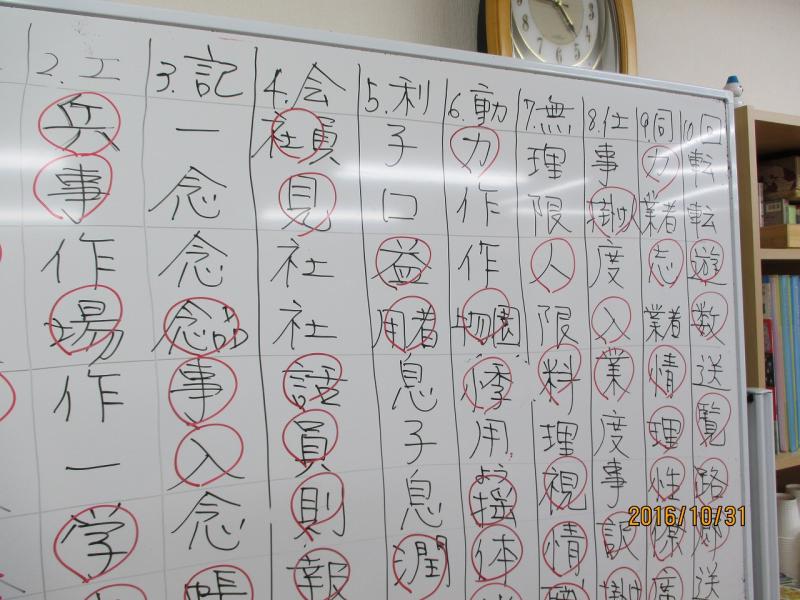 2.工
兵
事
作
場
作
一
学
3.記
一
念
念
念品
事
入
念
帳
4.会
社員
見
社
社
話
員
則
報
5.利
子
口
益
用者
息
子
息
潤
6.動
力
作
作
物園
悸
用
揺
体
7.無
理
限
人
限
料
理
視
情
8.仕
事
掛け人
度
入
業
度
事
訳
掛け
9.同
力
業者
志
業者
情
理
性
席
10.回
転
転
遊
数
送
覧
路
送
2016/10/31